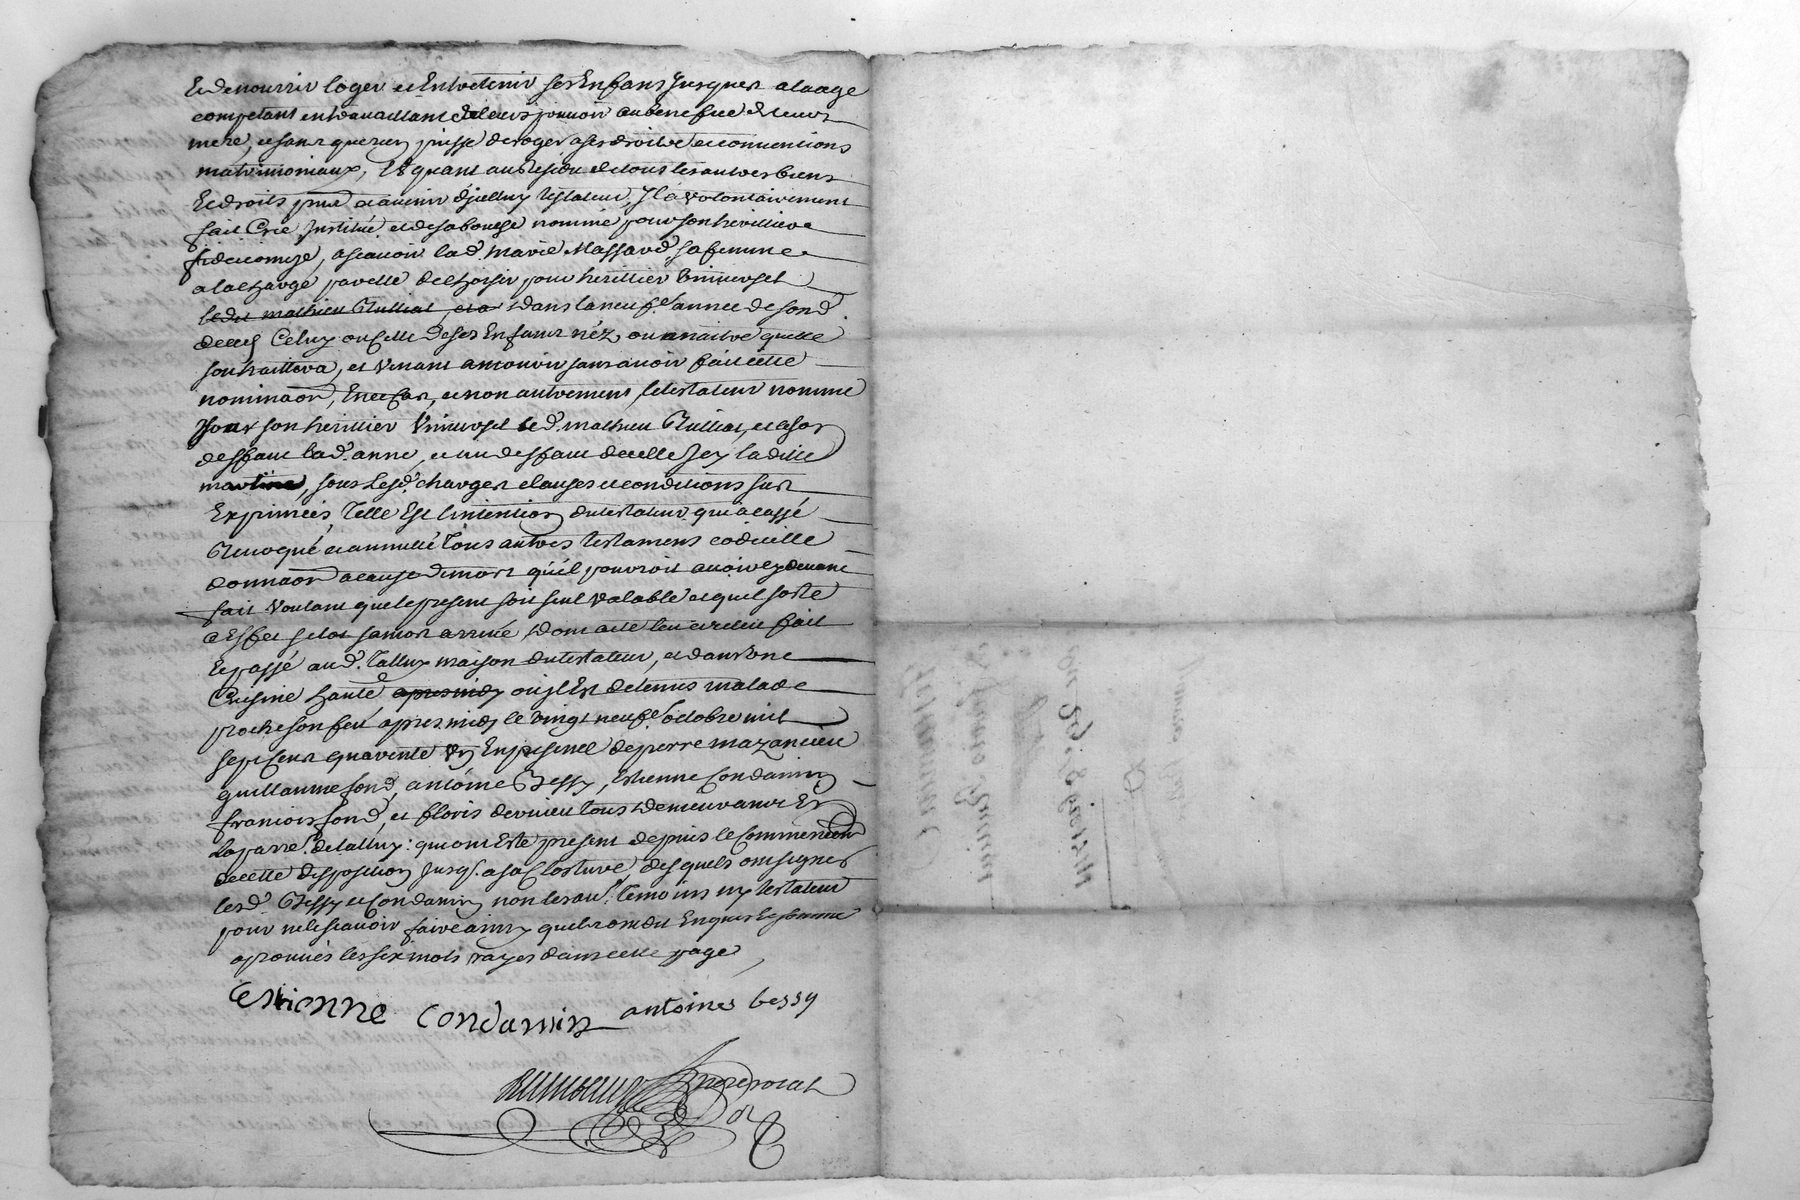 Et de nourrir loger et Entretenir ses Enfans Jusques a laage
competant en travaillant de leurs pouvoir au benefice de leur
mere, et sans que rien puisse deroger a ses droits et conventions
matrimoniaux, Et quant au Residu de tous les autres biens
Et droits pnts et avenir djcelluy testateur, Jl a volontairement
fait Créé Jnstitué et de sa bouche nommé pour son herittiere
fideicomise, ascavoir lad. marie Massard sa femme
a la charge par elle de choisir pour herittier Universel
ledit mathieu Rulliat, et a dans la neufe. année de son d.
deces Celuy ou Celle de ses Enfans néz ou a naitre quelle
souhaittera, et Venant a mourir sans avoir fait cette
nominaon, En ce Cas, et non autrement, le testateur nomme
Pour son herittier Universel led. mathieu Rulliat, et a son
deffaut lad. anne, et au deffaut decelle Jcy ladite
martine, sous lesd. charges clauses et conditions sus
Exprimées, Telle Est l'intention du testateur qui a cassé
Revoqué et annullé Tous autres testamens codicille
donnaon a cause de mort qu'il pourroit avoir cy devant
fait Voulant que le present soit seul valable et quil sorte
a Effet sitot sa mort arrivée, dont acte leu et releu fait
Et passé aud. Tallux maison du testateur, et dans une
Cuisine haute apres midy ou jl Est detenus malade
proche son feu, apres midy le vingt neufe. octobre mil
sept cent quarente un En presence de pierre mazancieu
guillaume fond, antoine Bessy, Estienne Condamin
francois fond, et floris dervieu tous demeurants En
La parre. de talluy: qui ont Esté present depuis le Commencemt
de cette disposition Jusq. a sa Closture, desquels ont signés
lesd. Bessy et Condamin non les aut. temoins ny testateur
pour ne le scavoir faire ainsy quils ont dit Enquis Et somme
aprouvés les six mots rayes dans cette page
estienne Condamin antoines bessy